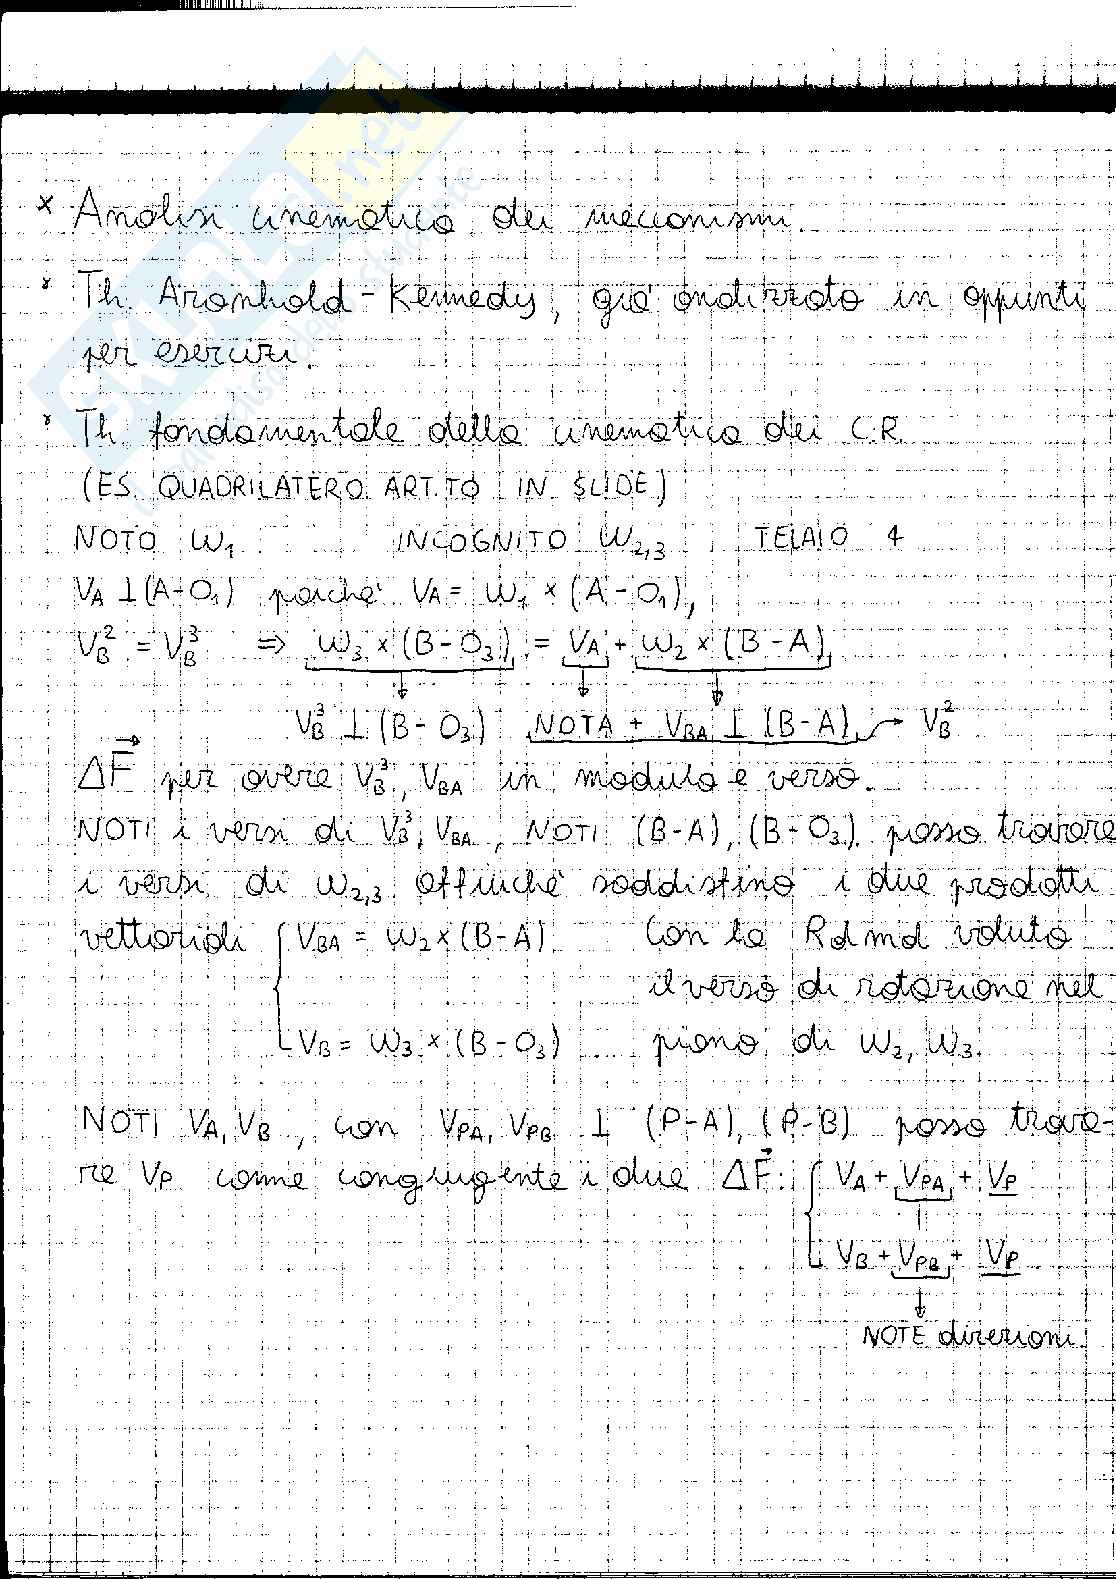 SKUOLA.net
× Analisi cinematica dei meccanismi.
× Th. Aronhold-Kennedy, già analizzato in appunti
per esercizi.
× Th fondamentale della cinematica dei C.R.
(ES. QUADRILATERO ART.TO IN SLIDE)
NOTO ω₁ INCOGNITO ω₂,₃ TELAIO 4
V_A ⊥ (A-O₁) poiché V_A = ω₁ × (A-O₁),
V_B² = V_B³ ⇒ ω₃ × (B-O₃) = V_A + ω₂ × (B-A)
V_B³ ⊥ (B-O₃) NOTA + V_BA ⊥ (B-A) → V_B²
ΔF⃗ per avere V_B³, V_BA in modulo e verso.
NOTI i versi di V_B³, V_BA, NOTI (B-A), (B-O₃) posso trovare
i versi di ω₂,₃ affinché soddisfino i due prodotti
vettoriali { V_BA = ω₂ × (B-A) Con la Rdmd valuto
il verso di rotazione nel
V_B = ω₃ × (B-O₃) piano di ω₂, ω₃.
NOTI V_A, V_B, con V_PA, V_PB ⊥ (P-A), (P-B) posso trova-
re V_P come congiugente i due ΔF⃗: { V_A + V_PA + V_P
V_B + V_PB + V_P
NOTE direzioni.